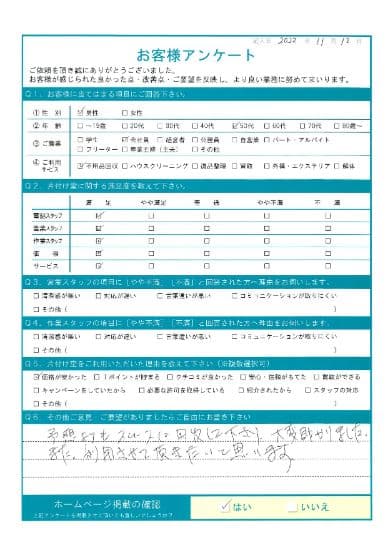 記入日 2022年11月12日
お客様アンケート
ご依頼を頂き誠にありがとうございました。
お客様が感じられた良かった点・改善点・ご要望を反映し、より良い業務に努めて参ります。
Q1. お客様に当てはまる項目にご回答下さい。
①性別 ☑男性 □女性
②年齢 □~19歳 □20代 □30代 □40代 ☑50代 □60代 □70代 □80歳~
③ご職業 □学生 ☑会社員 □経営者 □公務員 □自営業 □パート・アルバイト
□フリーター □専業主婦(主夫) □その他
④ご利用サービス ☑不用品回収 □ハウスクリーニング □遺品整理 □買取 □外構・エクステリア □解体
Q2. 片付け堂に関する満足度を教えて下さい。
満足 やや満足 普通 やや不満 不満
電話スタッフ ☑ □ □ □ □
営業スタッフ ☑ □ □ □ □
作業スタッフ ☑ □ □ □ □
価格 ☑ □ □ □ □
サービス ☑ □ □ □ □
Q3. 営業スタッフの項目に「やや不満」「不満」と回答された方へ理由をお伺いします。
□清潔感が無い □対応が遅い □言葉遣いが悪い □コミュニケーションが取りにくい
□その他(
Q4. 作業スタッフの項目に「やや不満」「不満」と回答された方へ理由をお伺いします。
□清潔感が無い □対応が遅い □言葉遣いが悪い □コミュニケーションが取りにくい
□その他(
Q5. 片付け堂をご利用いただいた理由を教えて下さい(※複数選択可)
☑価格が安かった □Tポイントが貯まる □クチコミが良かった □安心・信頼がもてた □買取ができる
□キャンペーンをしていたから □必要な許可を取得している □紹介されたから □スタッフの対応
□その他(
Q6. その他ご意見・ご要望がありましたらご自由にお書き下さい
予想よりも スムーズに 回収して下さり、大変助かりました。
また、利用させて頂きたいと思います
ホームページ掲載の確認 ☑はい □いいえ